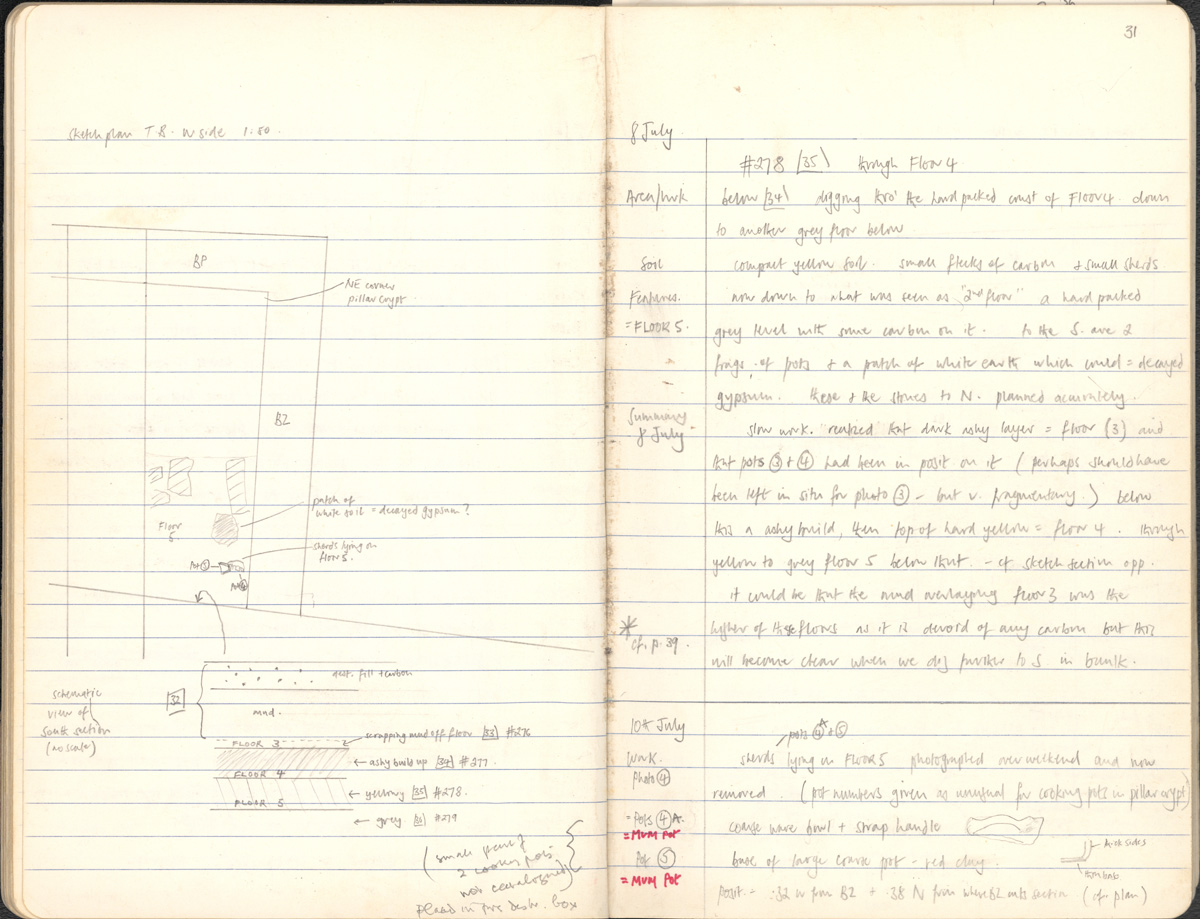 sketch plan T8. W side 1:50.
BP
NE corner
pillar crypt.
BZ
patch of
white soil = decayed gypsum?
Floor
5
sherds lying on
floor 5.
Pot
Pot
dest. fill + carbon
32
mud.
schematic
view of
South section
(no scale)
FLOOR 3
scrapping mud off floor 33 #276
ashy build up 34 #277
FLOOR 4
yellowy 35 #278.
FLOOR 5
grey #279
(small part of
2 cooking pots
not catalogued)
placed in box
31
8 July.
#278 35 through Floor 4
Area/wk below 34 digging thro' the hard packed crust of Floor 4. down
to another grey floor below
Soil compact yellow soil. small flecks of carbon + small sherds
Features. now down to what was seen as "2nd floor" a hard packed
= FLOOR 5. grey level with some carbon on it. to the S. are 2
frags. of pots + a patch of white earth which could = decayed
gypsum. these + the stones to N. planned accurately.
Summary
8 July slow work. realized that dark ashy layer = floor (3) and
that pots 3 + 4 had been in posit on it (perhaps should have
been left in situ for photo 3 – but v. fragmentary.) below
this a ashy build, then top of hard yellow = floor 4. through
yellow to grey floor 5 below that. – cf sketch section opp.
it could be that the mud overlaying floor 3 was the
* higher of these floors as it is devoid of any carbon but this
cf. p. 39. will become clear when we dig further to S in baulk.
10th July
pots 4A + 5
Work. sherds lying on FLOOR 5 photographed over weekend and now
Photo 4 removed. (pot numbers given as unusual for cooking pots in pillar crypt)
= Pots 4 A. coarse ware bowl + strap handle
= MUM Pot
Pot 5 base of large coarse pot – red clay.
thick sides
= MUM Pot
Posit = .32 W from BZ + .38 N from where BZ section (cf. plan)